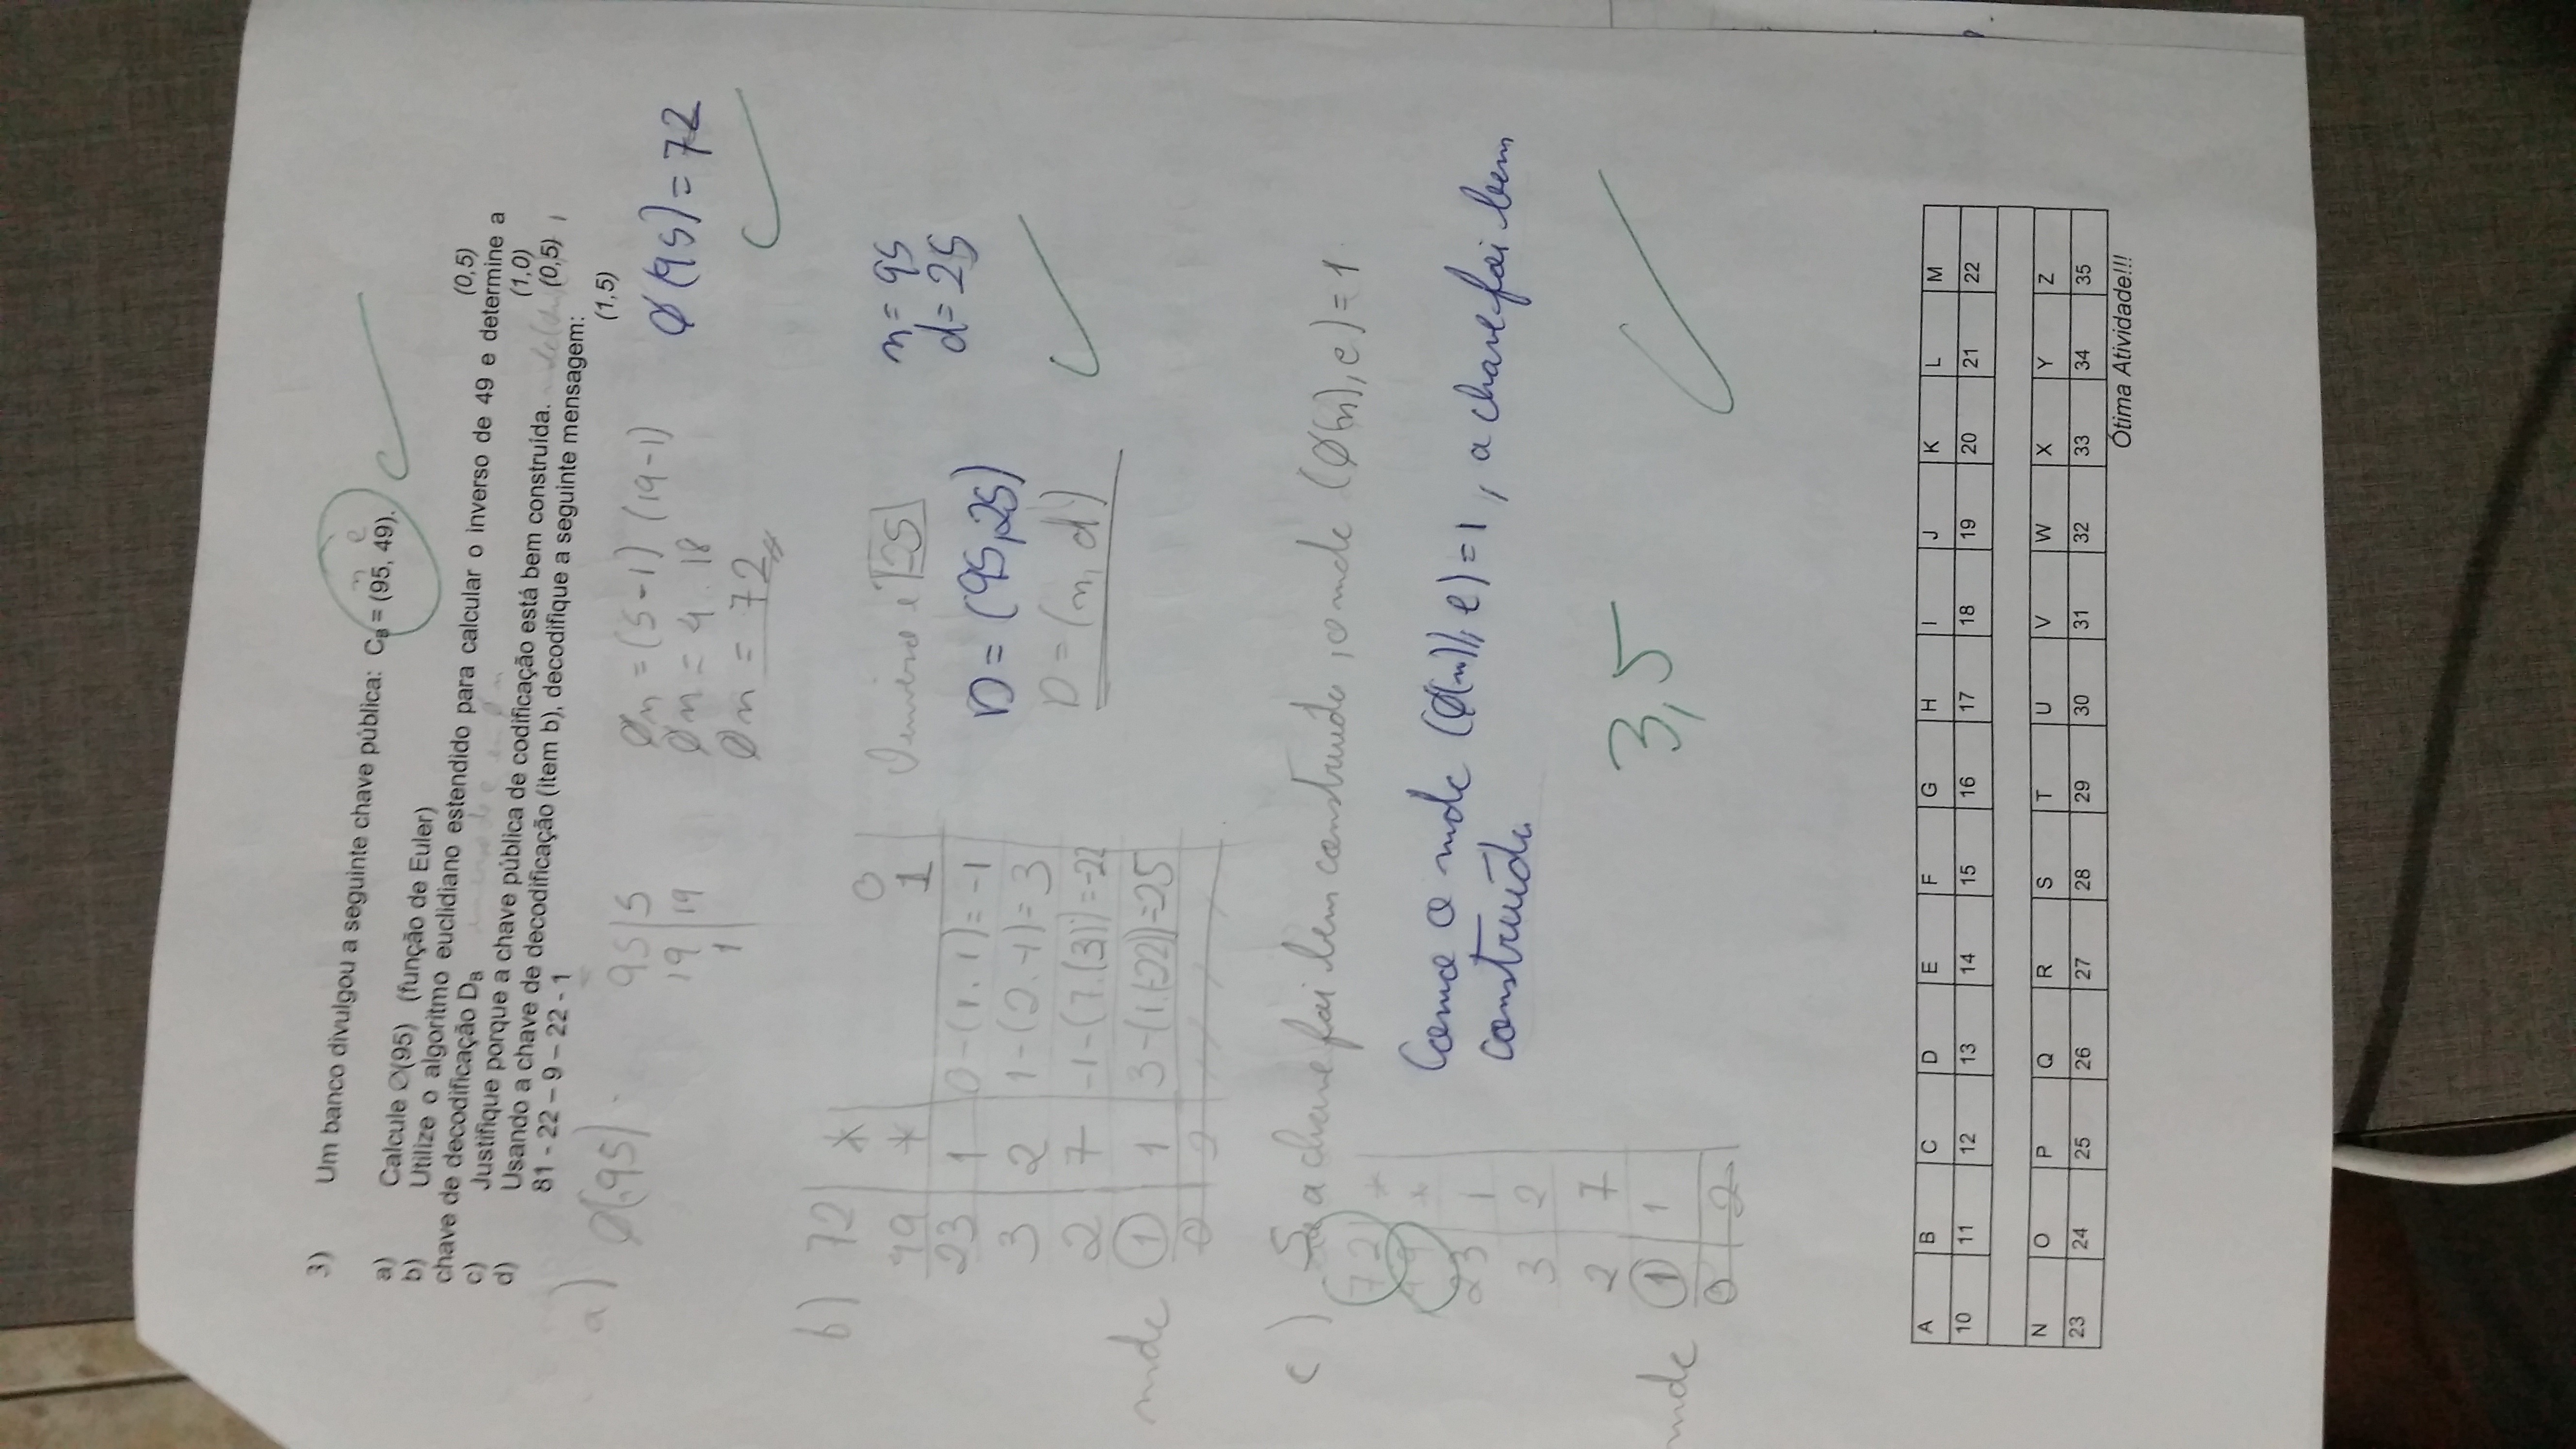 3) Um banco divulgou a seguinte chave pública: C_B = (95, 49).
n e
a) Calcule Ø(95) (função de Euler) (0,5)
b) Utilize o algoritmo euclidiano estendido para calcular o inverso de 49 e determine a
chave de decodificação D_B (1,0)
c) Justifique porque a chave pública de codificação está bem construída. (0,5)
d) Usando a chave de decodificação (item b), decodifique a seguinte mensagem:
81 - 22 – 9 – 22 - 1 (1,5)
a) Ø(95) 95 | 5 Øn = (5-1) (19-1) Ø(95) = 72
19 | 19 Øn = 4 . 18
1 Øn = 72
b) 72 * 0
49 * 1 O inverso é 25 n = 95
23 1 0-(1.1)=-1 d = 25
3 2 1-(2.-1)=3 D = (95,25)
2 7 -1-(7.(3))=-22 D = (n, d)
mdc 1 1 3-(1.(-22))=25
0 2
c) Se a chave foi bem construída, o mdc (Ø(n), e) = 1
72 *
49 *
23 1
3 2
2 7
mdc 1 1
0 2
Como o mdc (Ø(n), e) = 1, a chave foi bem
construída
3,5
A B C D E F G H I J K L M
10 11 12 13 14 15 16 17 18 19 20 21 22
N O P Q R S T U V W X Y Z
23 24 25 26 27 28 29 30 31 32 33 34 35
Ótima Atividade!!!